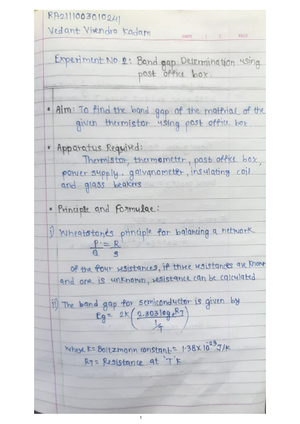 RA2111003010241
Vedant Virendra Kadam
DATE
PAGE
Experiment No 2: Band gap Determination using
post office box
• Aim: To find the band gap of the material of the
given thermistor using post office box
• Apparatus Required:
Thermistor, thermometer, post office box,
power supply, galvanometer, insulating coil
and glass beakers
• Principle and Formulae:
i) Wheatstone's principle for balancing a network
P = R
Q S
Of the four resistances, if three resistances are known
and one is unknown, resistance can be calculated
ii) The band gap for semiconductor is given by
Eg = 2K (2.303 log RT
1/T)
Where K = Boltzmann constant = 1.38 × 10⁻²³ J/k
RT = Resistance at 'T' K